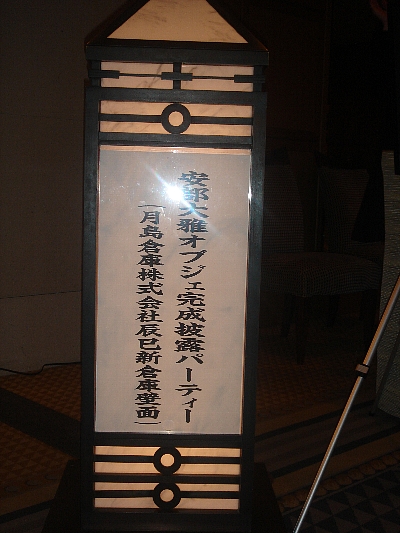 安部大雅オブジェ完成披露パーティー
（月島倉庫株式会社辰巳新倉庫壁面）